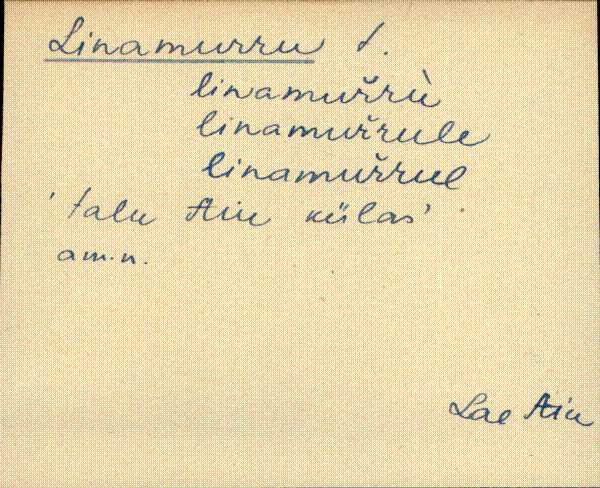 Linamurru t.
linamuřrù
linamuřrule
linamuřrul
'talu Aiu külas'
am.n.
Lae Aiu